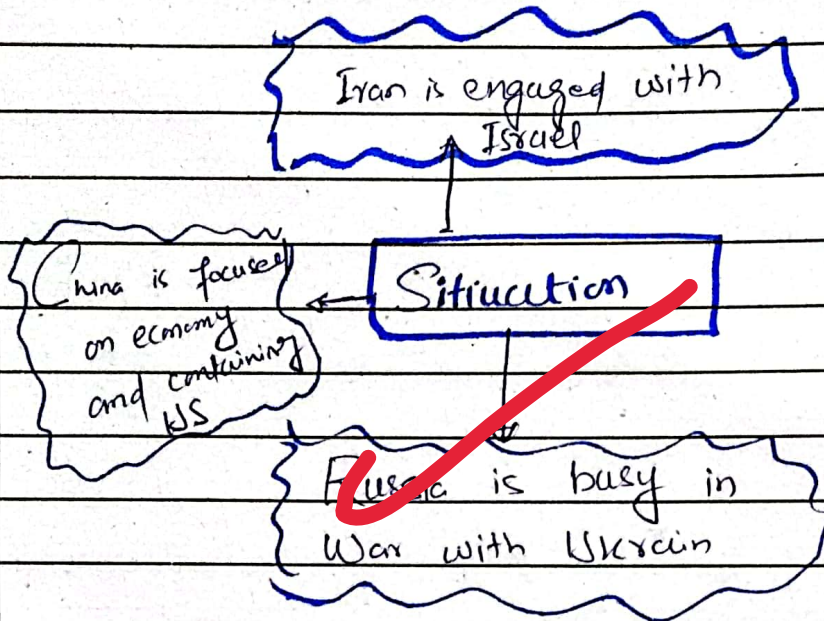 Iran is engaged with
Israel
China is focused
on economy
and containing
US
Sitiucution
Russia is busy in
War with Ukrain